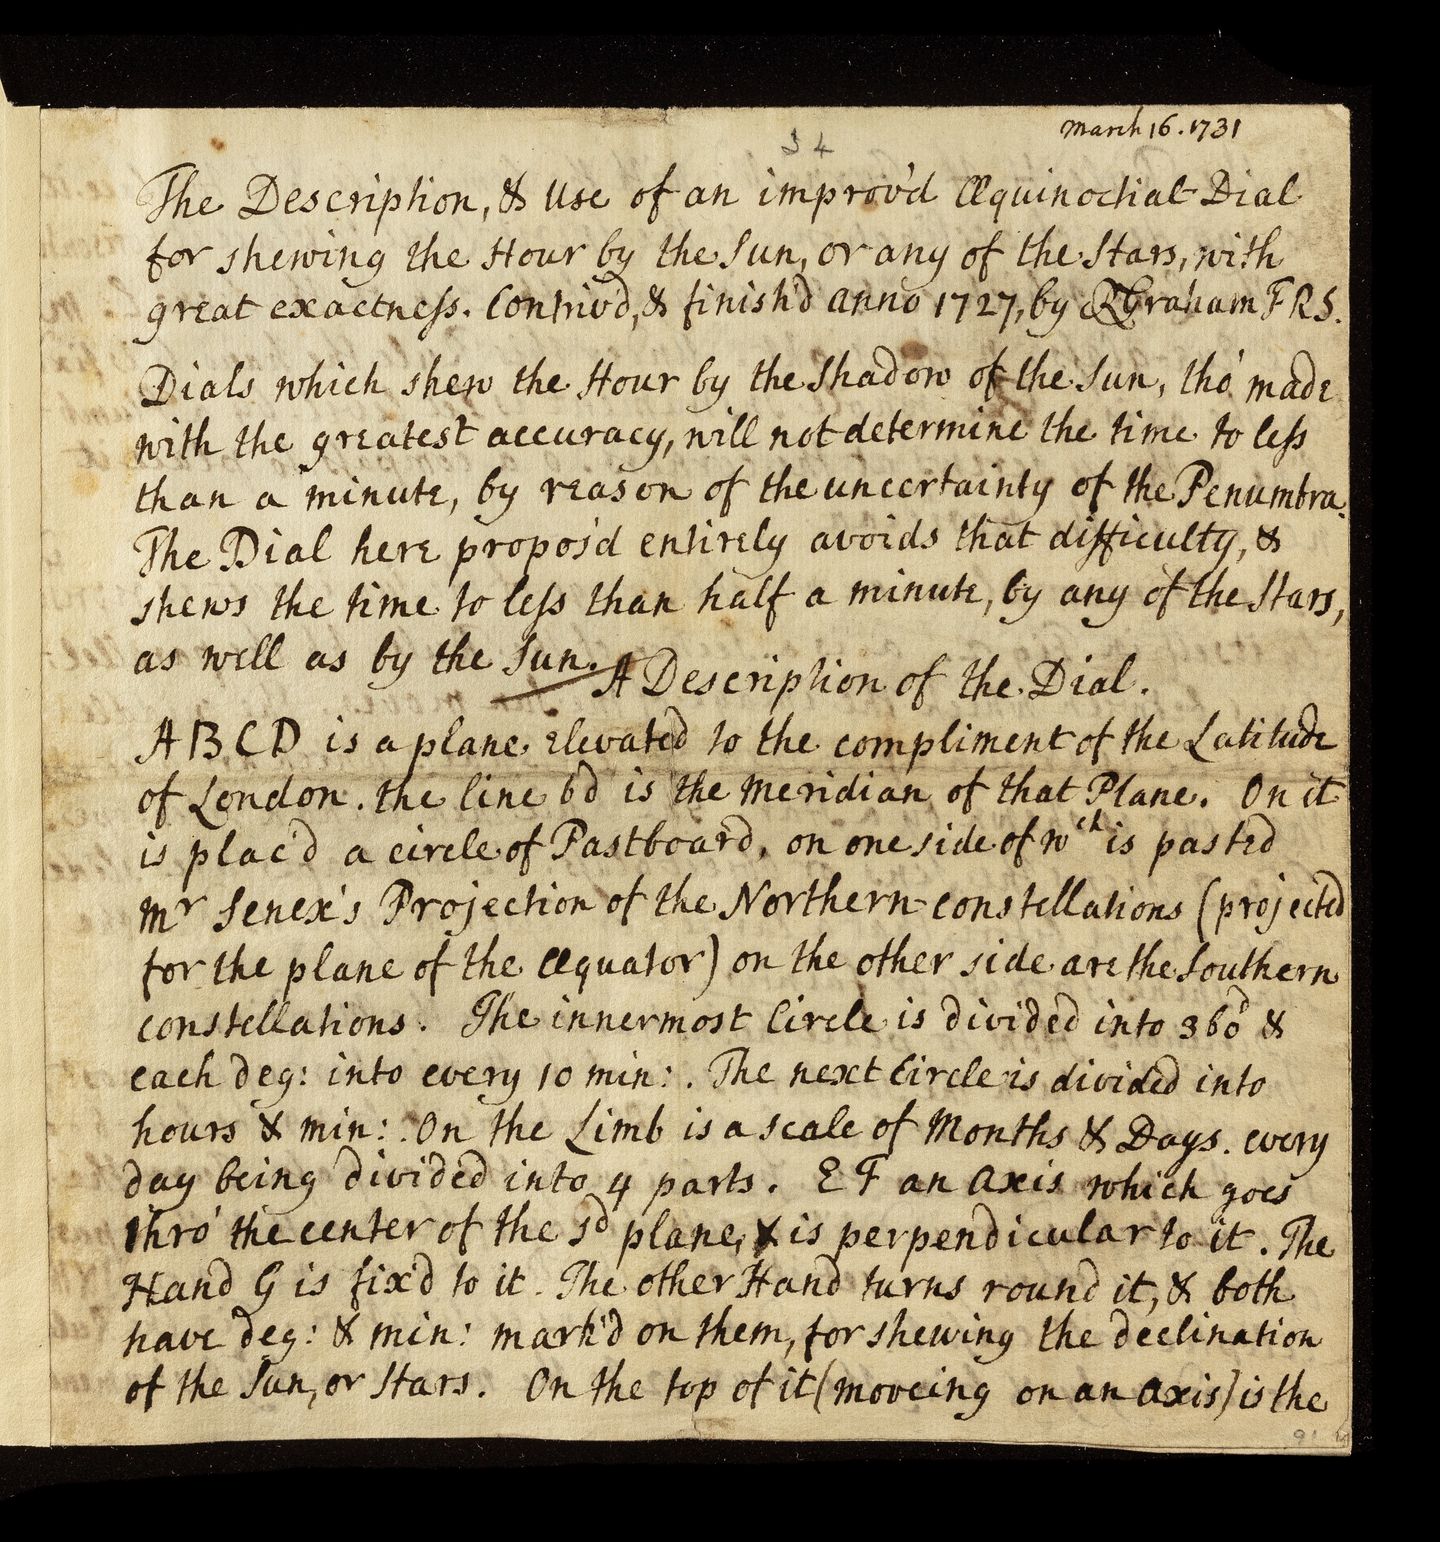 March 16. 1731
34
The Description, & Use of an improv'd Æquinoctial Dial
for shewing the Hour by the Sun, or any of the Stars, with
great exactness. Contriv'd, & finish'd anno 1727, by R Graham F R S.
Dials which shew the Hour by the Shadow of the Sun, tho' made
with the greatest accuracy, will not determine the time to less
than a minute, by reason of the uncertainty of the Penumbra.
The Dial here propos'd entirely avoids that difficulty, &
shews the time to less than half a minute, by any of the Stars,
as well as by the Sun.
A Description of the Dial.
A B C D is a plane elevated to the compliment of the Latitude
of London. the line bd is the Meridian of that Plane. On it
is plac'd a circle of Pastboard, on one side of wch is pasted
Mr Senex's Projection of the Northern constellations (projected
for the plane of the Æquator) on the other side are the Southern
constellations. The innermost Circle is divided into 360d &
each deg: into every 10 min: . The next Circle is divided into
hours & min: . On the Limb is a scale of Months & Days. every
day being divided into 4 parts. E F an axis which goes
thro' the center of the sd plane, & is perpendicular to it. The
Hand G is fix'd to it. The other Hand turns round it, & both
have deg: & min: mark'd on them, for shewing the declination
of the Sun, or Stars. On the top of it (moveing on an axis) is the
91